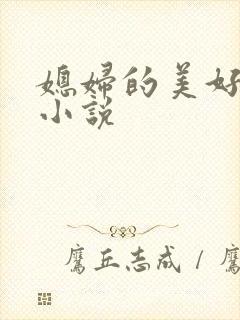 媳婦的美好
小說
鷹丘志成 / 鷹